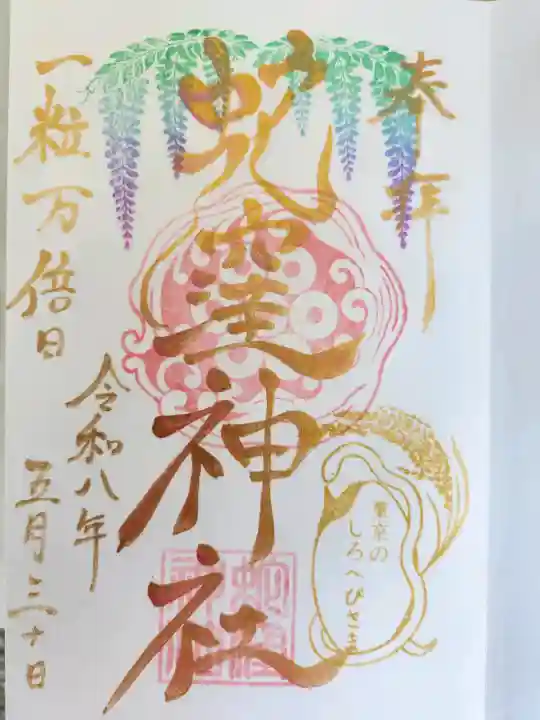 奉拝
蛇窪神社
一粒万倍日
令和八年
五月三十日
東京の
しろへびさま